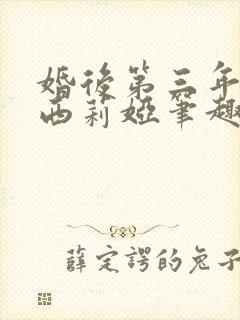 婚後第三年
西莉婭筆趣
薛定諤的兔子